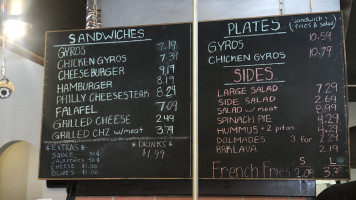 SANDWICHES
GYROS 7.19
CHICKEN GYROS 7.39
CHEESEBURGER 9.19
HAMBURGER 8.19
PHILLY CHEESESTEAK 8.29
FALAFEL 7.09
GRILLED CHEESE 2.49
GRILLED CHZ w/meat 3.79
EXTRAS
SAUCE 50¢
JALAPEÑOS 50¢
CHEESE $1.00
OLIVES $1.00
DRINKS
$1.99
PLATES (Sandwich + fries & salad)
GYROS 10.59
CHICKEN GYROS 10.79
SIDES
LARGE SALAD 7.29
SIDE SALAD 2.69
SPINACH PIE 4.29
HUMMUS + 2 pitas 4.29
DOLMADES 3 for
BAKLAVA 2.19
S L
French Fries 2.09